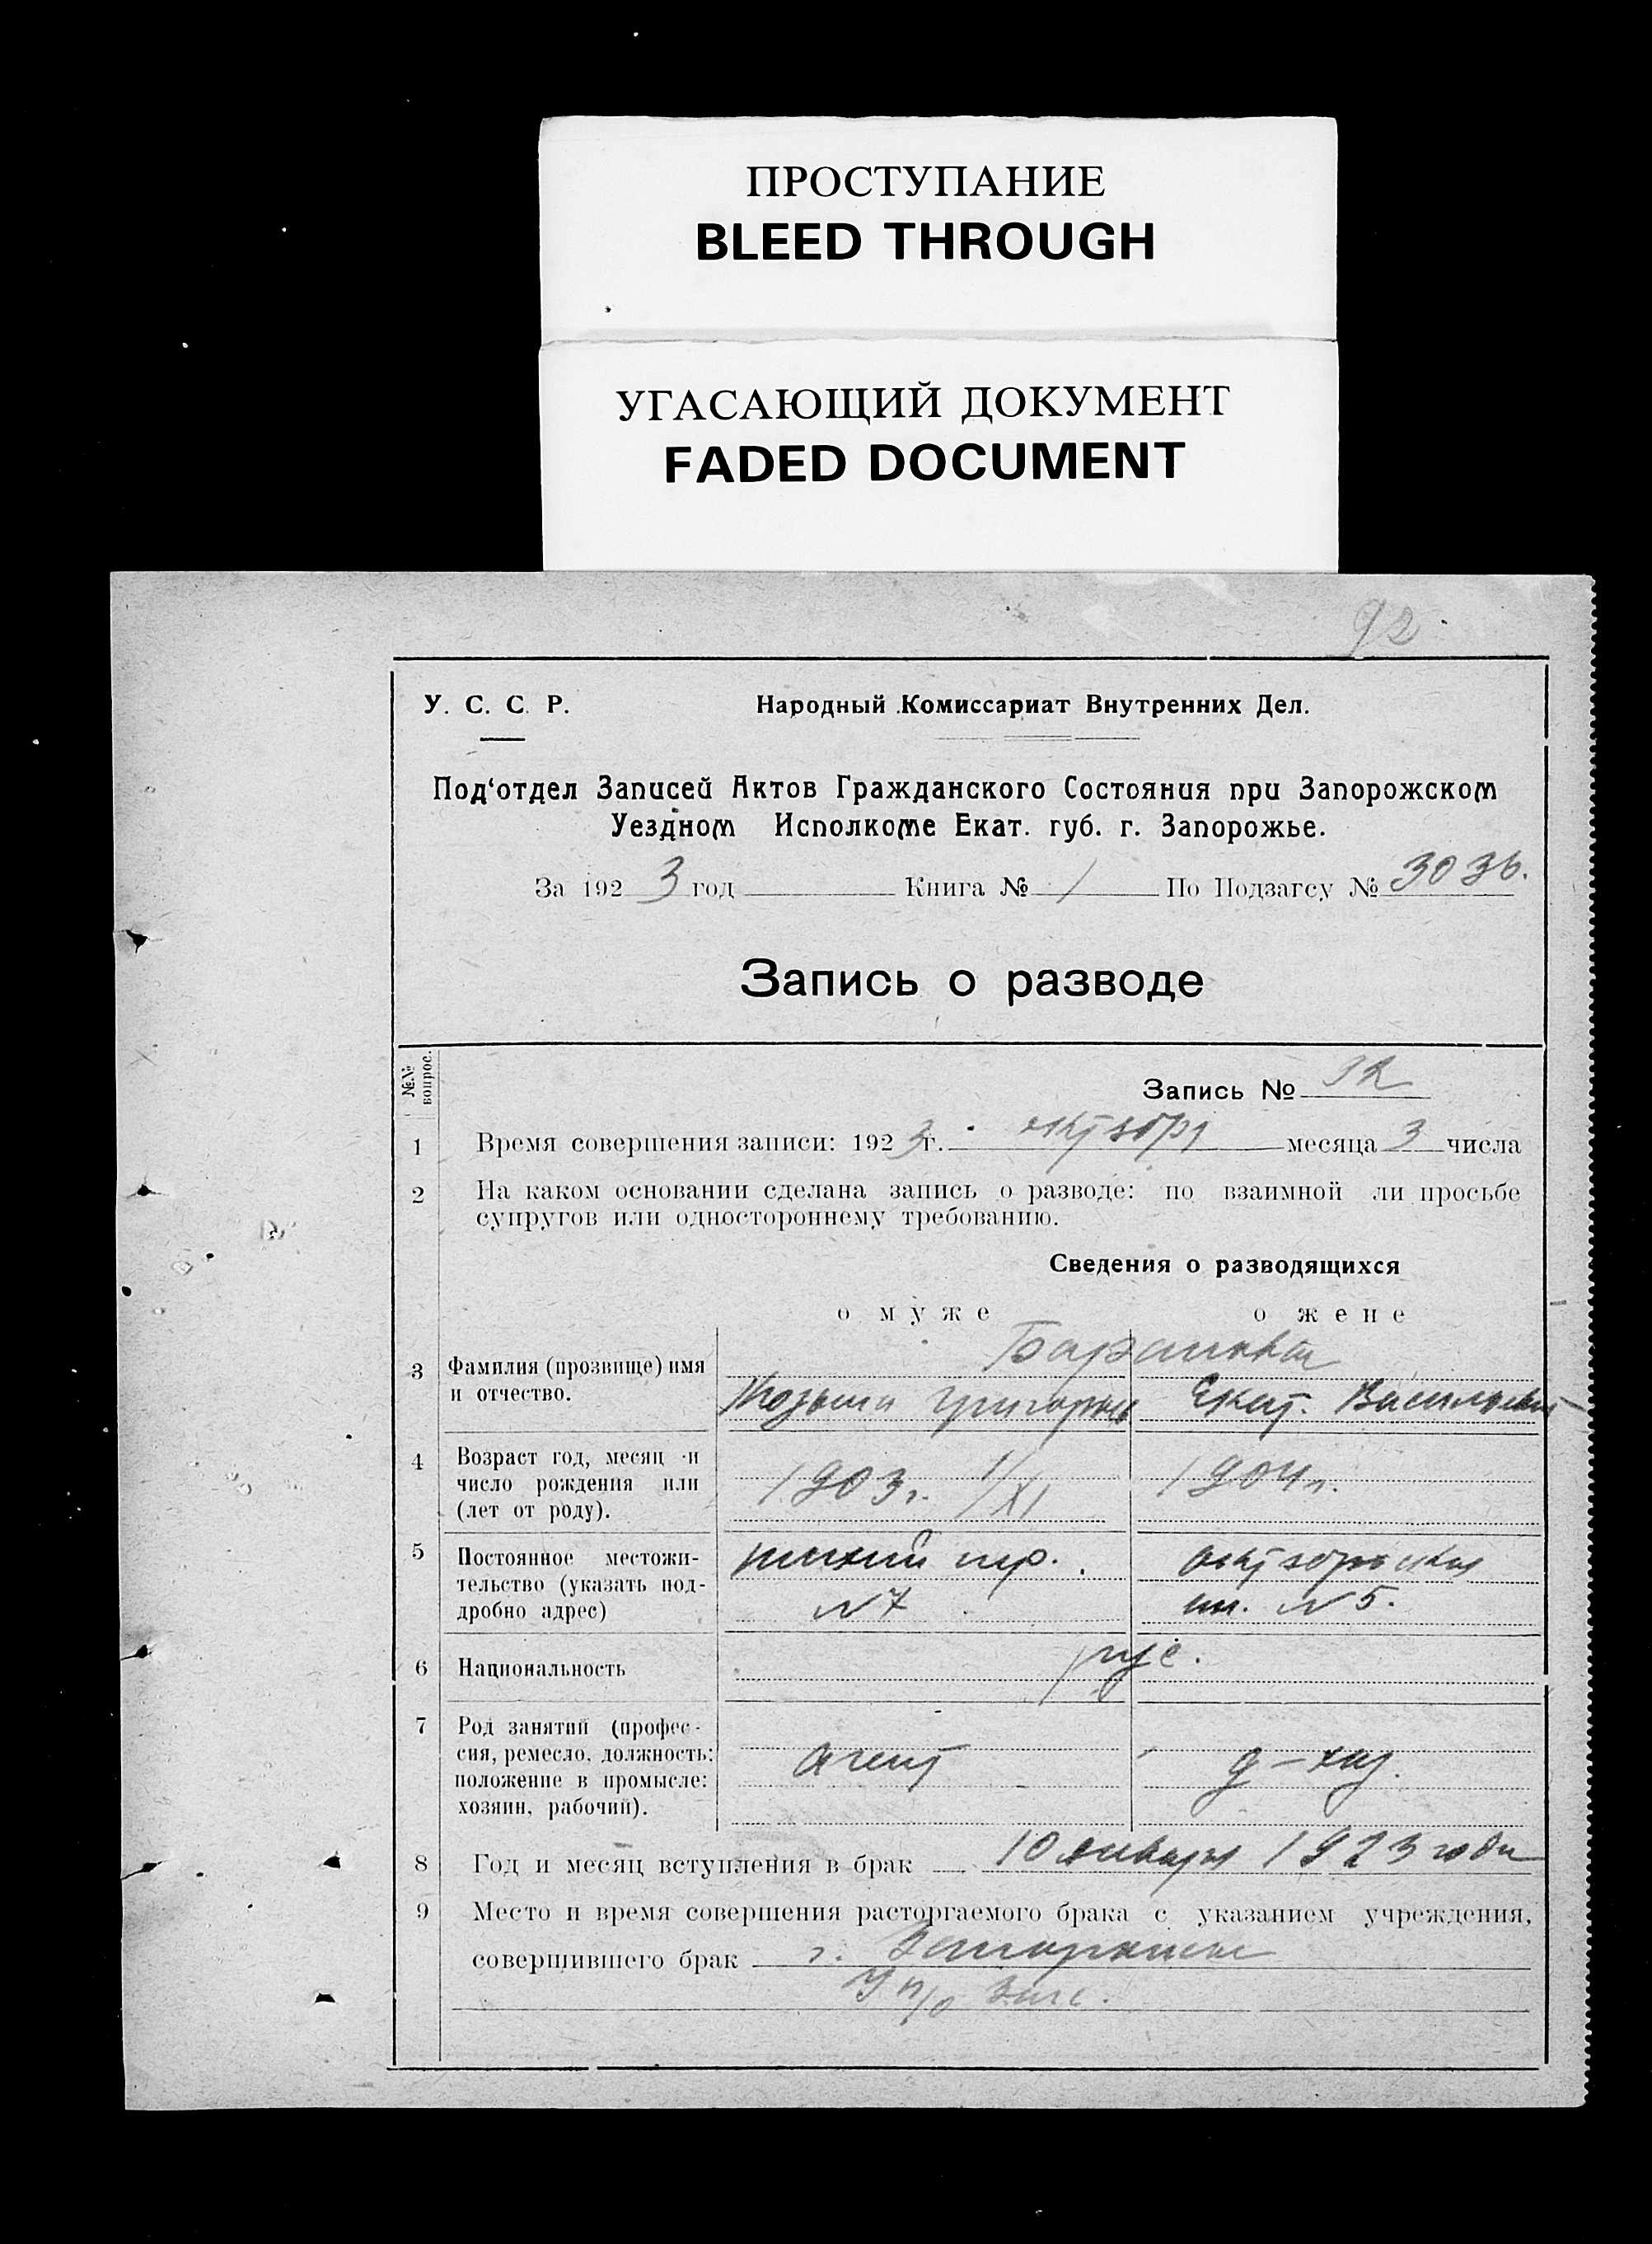 ПРОСТУПАНИЕ
BLEED THROUGH
УГАСАЮЩИЙ ДОКУМЕНТ
FADED DOCUMENT
92
У. С. С. Р.
Народный Комиссариат Внутренних Дел.
Под'отдел Записей Актов Гражданского Состояния при Запорожском
Уездном Исполкоме Екат. губ. г. Запорожье.
За 1923 год Книга № 1 По Подзагсу №
Запись о разводе
№№ вопрос.
Запись №
1 Время совершения записи: 1923 г. октября месяца 3 числа
2 На каком основании сделана запись о разводе: по взаимной ли просьбе
супругов или одностороннему требованию.
Сведения о разводящихся
о муже о жене
3 Фамилия (прозвище) имя
и отчество.
Козьма Григорьев Екат. Васильевна
4 Возраст год, месяц и
число рождения или
(лет от роду).
1903 г. 1/XI 1904 г.
5 Постоянное местожи-
тельство (указать под-
дробно адрес)
пер. Октябрьская
№ 7 пл. № 5.
6 Национальность рус.
7 Род занятий (профес-
сия, ремесло, должность:
положение в промысле:
хозяин, рабочий).
агент д-хоз.
8 Год и месяц вступления в брак 10 января 1923 года
9 Место и время совершения расторгаемого брака с указанием учреждения,
совершившего брак г. Запорожье
У п/о Загс.